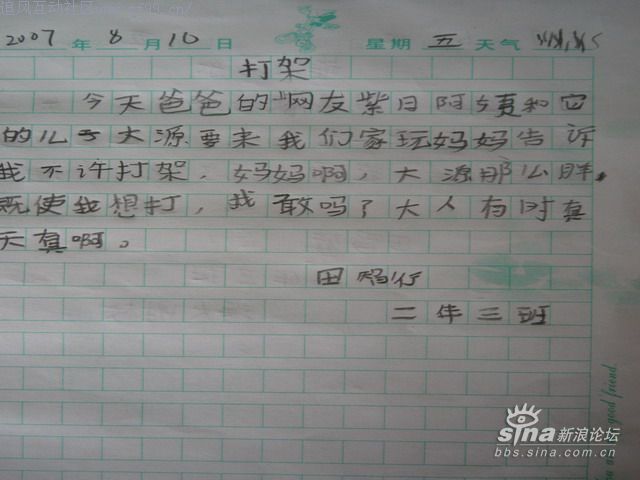 追风互动社区
2007 年 8 月 10 日 星期 五 天气
打架
今天爸爸的"网友紫日阿姨和它
的儿子大源要来我们家玩妈妈告诉
我不许打架，妈妈啊，大源那么胖，
既使我想打，我敢吗？大人有时真
天真啊。
田
二年三班
good friend
sina新浪论坛
bbs.sina.com.cn